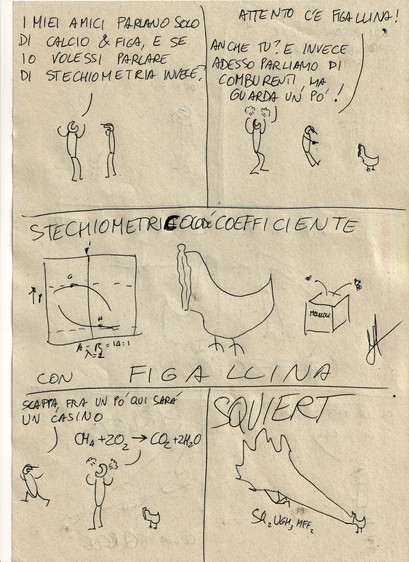 I MIEI AMICI PARLANO SOLO
DI CALCIO & FIGA, E SE
IO VOLESSI PARLARE
DI STECHIOMETRIA INVECE?
ATTENTO C'È FIGALLINA!
ANCHE TU? E INVECE
ADESSO PARLIAMO DI
COMBURENTI, MA
GUARDA UN PO'!
COEFFICIENTE
MOLECOLE
A = F = 14:1
λ=1
CON FIGALLINA
SCAPPA, FRA UN PO' QUI SARÀ
UN CASINO
CH4+2O2→CO2+2H2O
SQUIERT